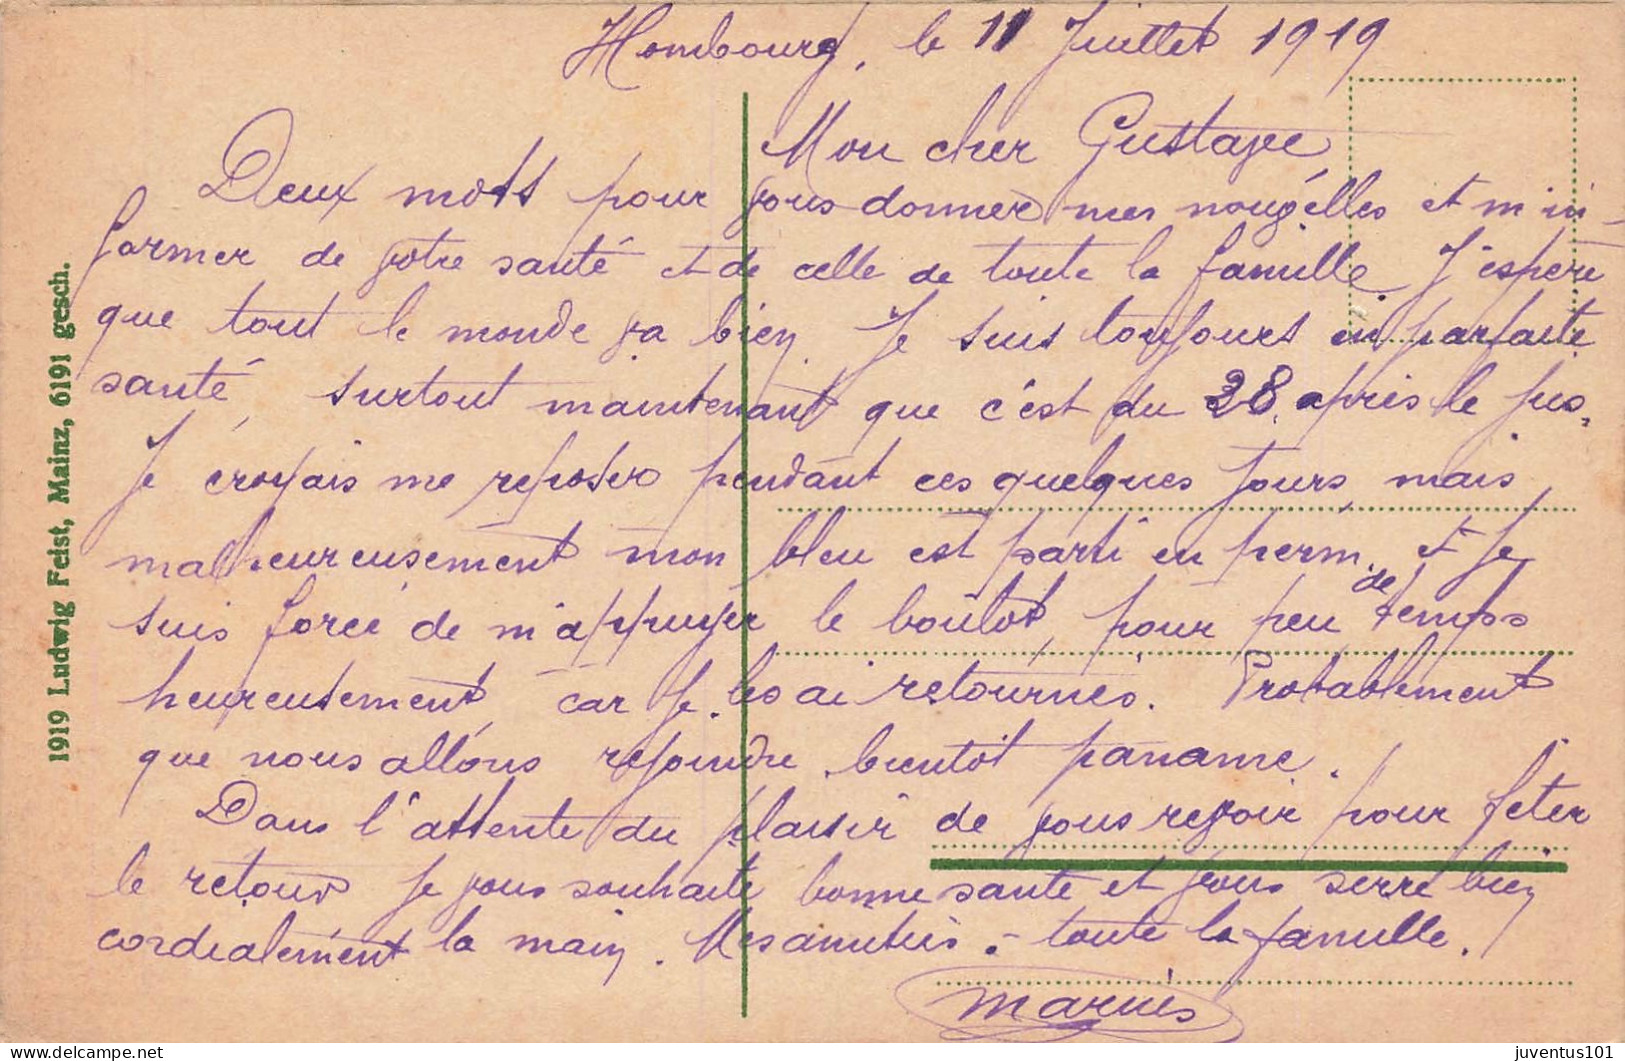 Hombourg, le 11 Juillet 1919
Mon cher Gustave
Deux mots pour vous donner mes nouvelles et m'in-
former de votre santé et de celle de toute la famille. J'espère
que tout le monde va bien. Je suis toujours en parfaite
santé, surtout maintenant que c'est du 28 après le jus,
Je croyais me reposer pendant ces quelques jours, mais
malheureusement mon bleu est parti en perm. et je
suis forcé de m'appuyer le boulot, pour peu de temps
heureusement, car je les ai retournés. Probablement
que nous allons rejoindre bientôt paname.
Dans l'attente du plaisir de vous revoir pour fêter
le retour je vous souhaite bonne santé et vous serre bien
cordialement la main. Mes amitiés à toute la famille.
Marius
1919 Ludwig Feist, Mainz, 6191 gesch.
delcampe.net
juventus101